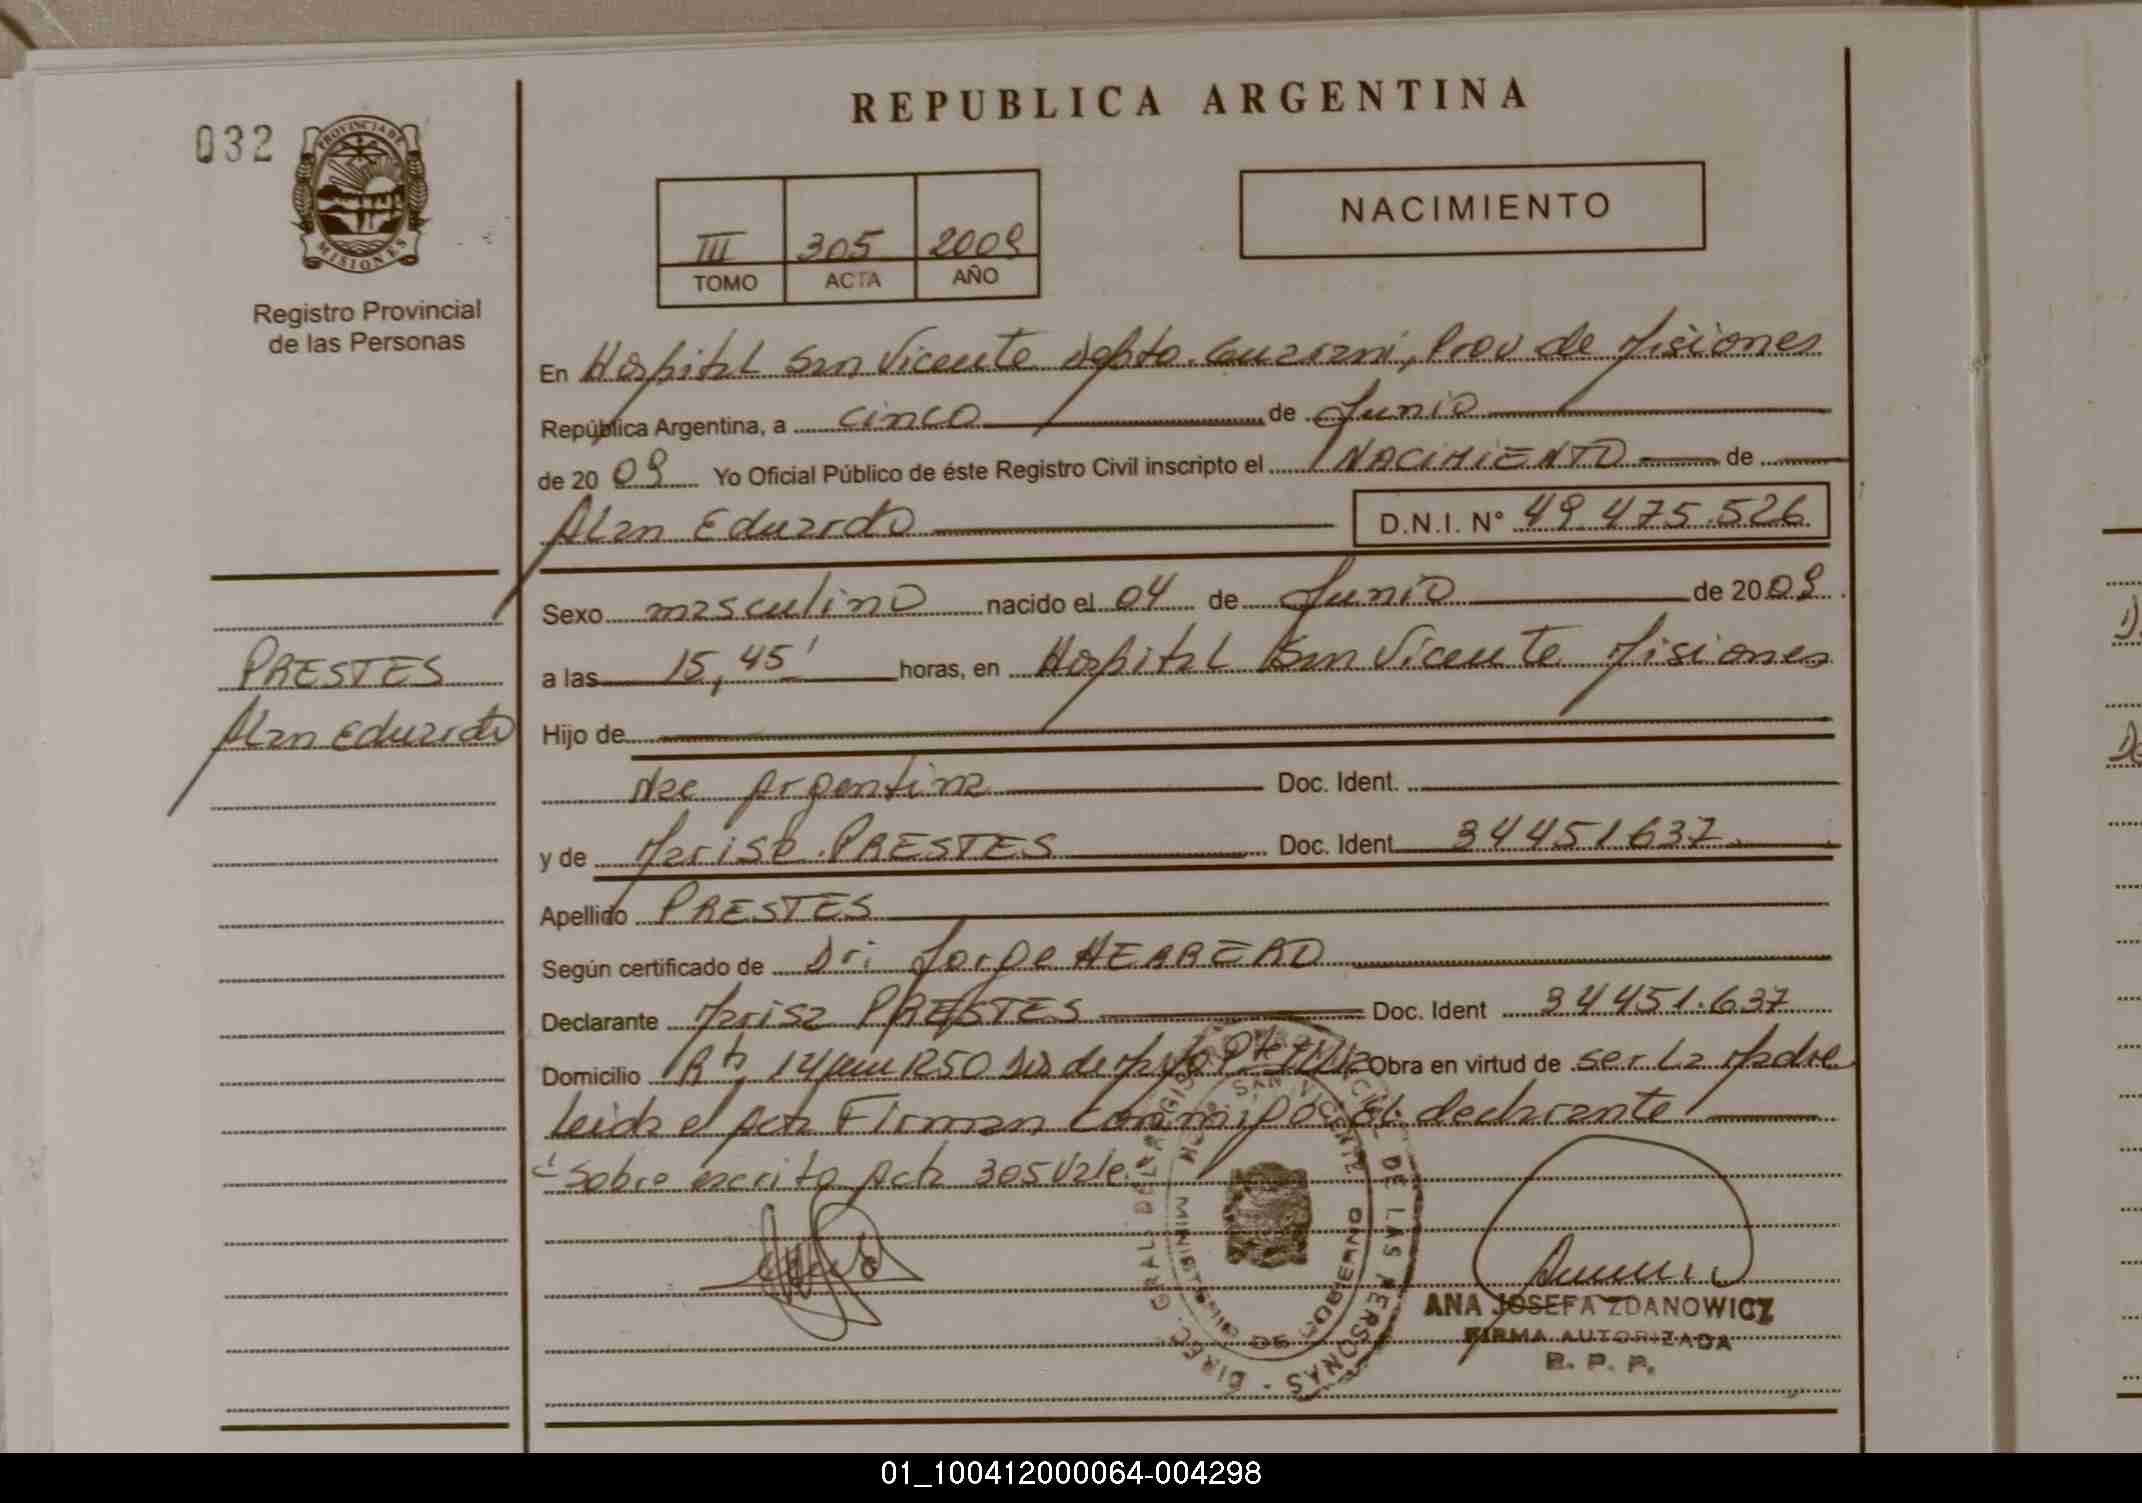 REPUBLICA ARGENTINA
032
PROVINCIA DE
MISIONES
Registro Provincial
de las Personas
NACIMIENTO
III 305 2009
TOMO ACTA AÑO
En Hospital San Vicente depto. Guarani, Prov de Misiones
República Argentina, a cinco de Junio
de 2009 Yo Oficial Público de éste Registro Civil inscripto el NACIMIENTO de
Alan Eduardo D.N.I. N° 49.475.526
Sexo masculino nacido el 04 de Junio de 2009
PRESTES
Alan Eduardo
a las 15,45' horas, en Hospital San Vicente Misiones
Hijo de
Nac Argentina Doc. Ident.
y de Marisa PRESTES Doc. Ident 34451637
Apellido PRESTES
Según certificado de Dr: Jorge HERRERO
Declarante Marisa PRESTES Doc. Ident 34451.637
Domicilio 14 1250 de Mayo Obra en virtud de ser La Madre
Leida el Acta Firman conmigo el declarante
Sobre escrito Acta 305 Vale.
DIREC. GRAL. DEL REGISTRO PROVINCIAL DE LAS PERSONAS
SAN VICENTE
MINISTERIO DE GOBIERNO
ANA JOSEFA ZDANOWICZ
FIRMA AUTORIZADA
R. P. P.
01_100412000064-004298